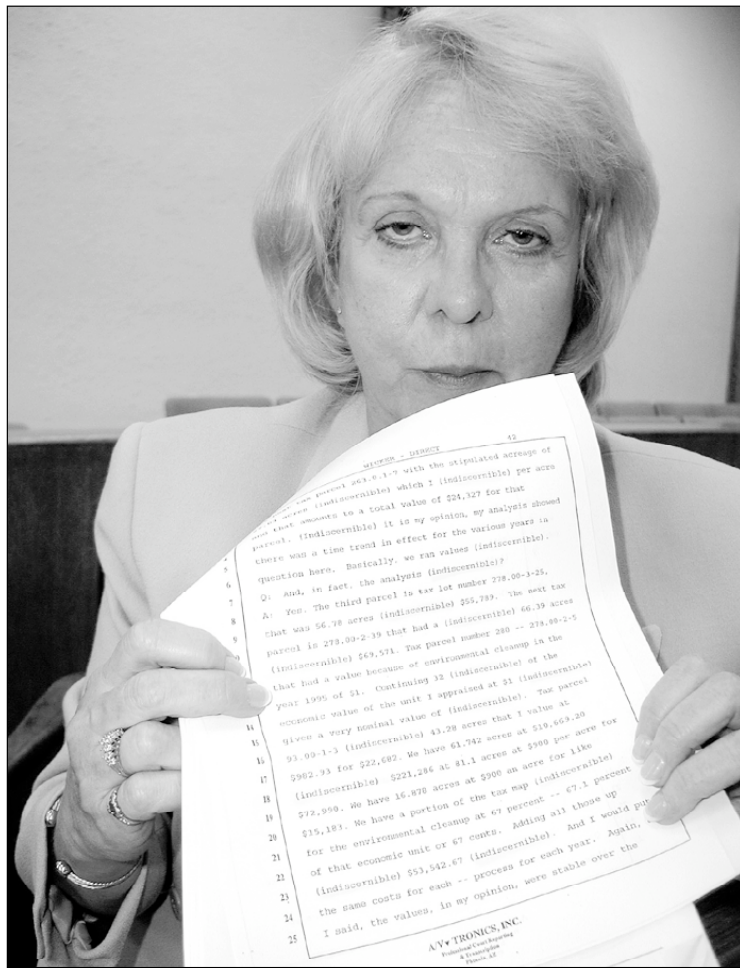 WICKEM - DIRECT 42
tax parcel 263.0.1-7 with the stipulated acreage of
acres (indiscernible) which I (indiscernible) per acre
and that amounts to a total value of $24,327 for that
parcel. (Indiscernible) it is my opinion, my analysis showed
there was a time trend in effect for the various years in
5 question here. Basically, we ran values (indiscernible).
6 Q: And, in fact, the analysis (indiscernible)?
7 A: Yes. The third parcel is tax lot number 278.00-3-25,
8 that was 56.78 acres (indiscernible) $55,789. The next tax
9 parcel is 278.00-2-39 that had a (indiscernible) 66.39 acres
(indiscernible) $69,571. Tax parcel number 280 -- 278.00-2-5
that had a value because of environmental cleanup in the
year 1995 of $1. Continuing 32 (indiscernible) of the
economic value of the unit I appraised at $1 (indiscernible)
14 given a very nominal value of (indiscernible). Tax parcel
15 93.00-1-3 (indiscernible) 43.28 acres that I value at
16 $982.93 for $22,682. We have 61.742 acres at $10,669.20
17 (indiscernible) $221,286 at 81.1 acres at $900 per acre for
18 $72,990. We have 16.870 acres at $900 an acre for like
19 $15,183. We have a portion of the tax map (indiscernible)
20 for the environmental cleanup at 67 percent -- 67.1 percent
21 of that economic unit or 67 cents. Adding all those up
22 (indiscernible) $53,542.67 (indiscernible). And I would put
23 the same costs for each -- process for each year. Again,
24 I said, the values, in my opinion, were stable over the
25
A/V TRONICS, INC.
Professional Court Reporting
& Transcription
Phoenix, AZ